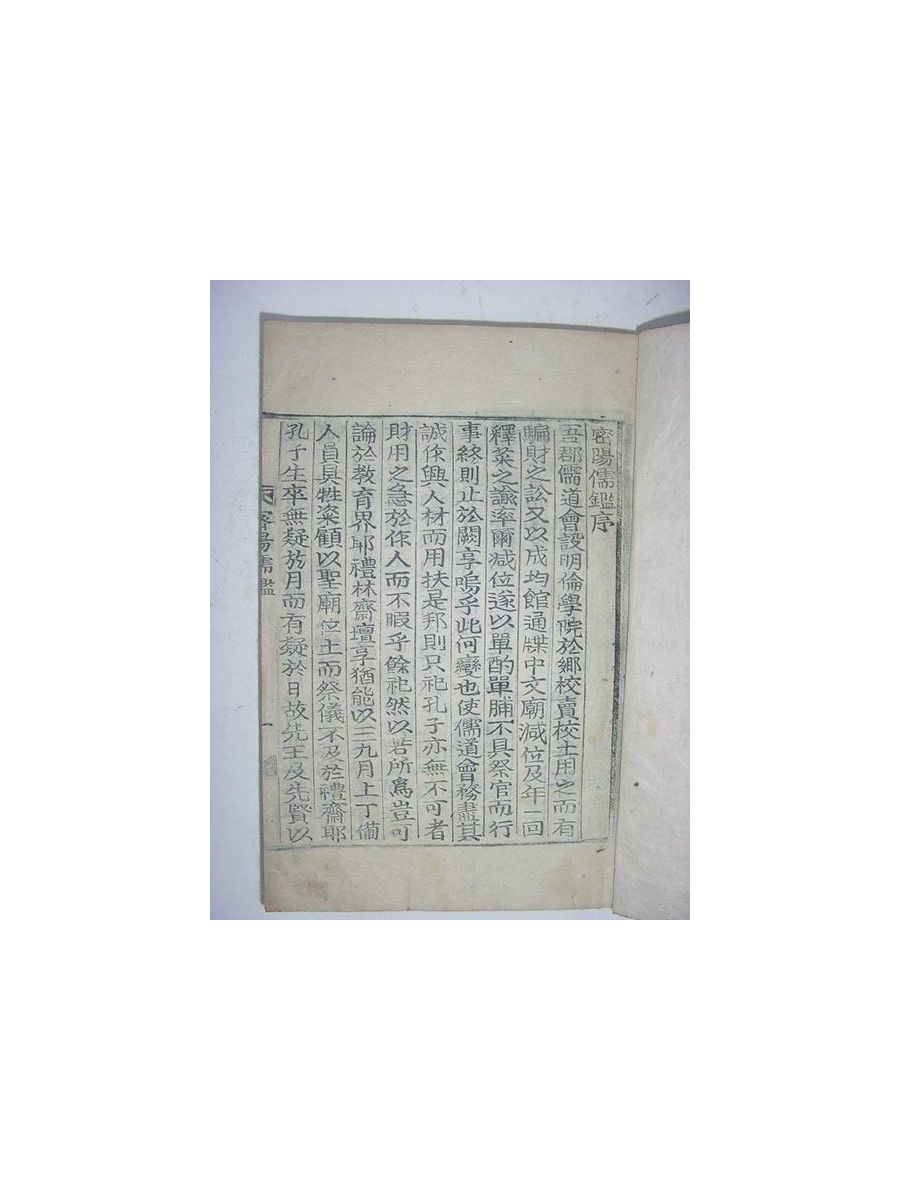 密陽儒鑑序
吾郡儒道會設明倫學院於鄉校賣校土用之而有
騙財之訟又以成均館通牒中文廟減位及年一回
釋菜之諭率爾減位遂以單酌單脯不具祭官而行
事終則止於闕享嗚乎此何變也使儒道會務盡其
誠作興人材而用扶是邦則只祀孔子亦無不可者
財用之急於作人而不暇乎餘祀然以若所爲豈可
論於敎育界耶禮林齋壇享猶能以三九月上丁備
人員具牲粢顧以聖廟位土而祭儀不及於禮齋耶
孔子生卒無疑於月而有疑於日故先王及先賢以
密陽儒鑑
一